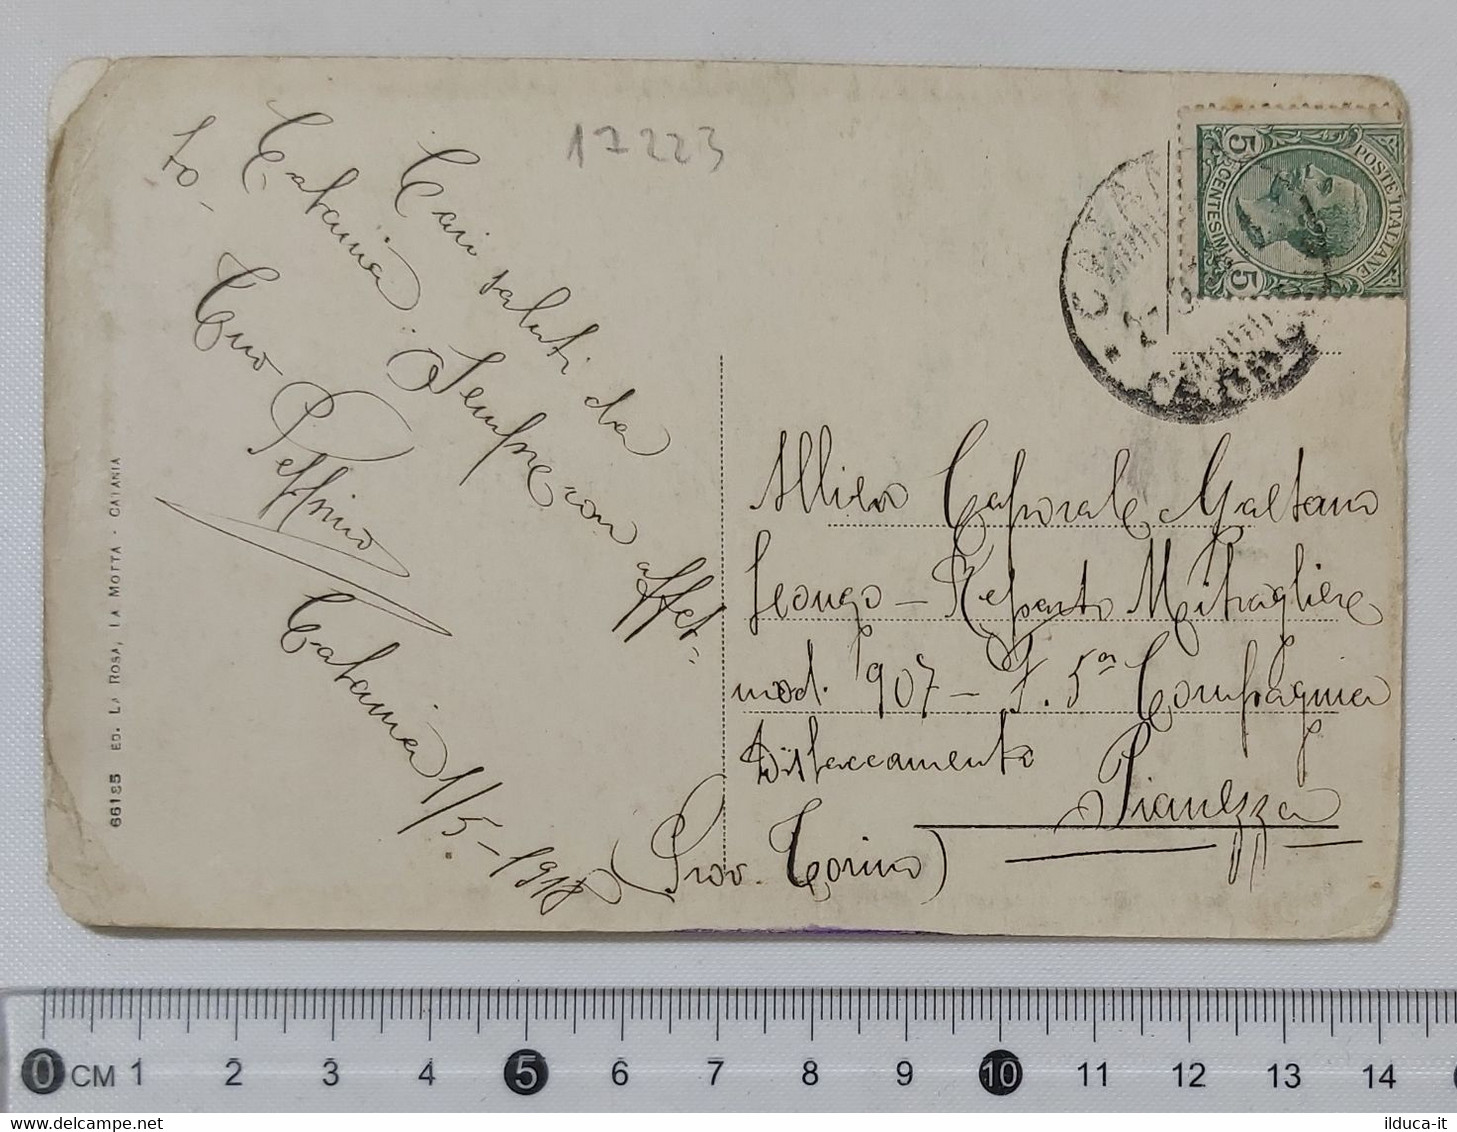 17223
Cari saluti da
Catania. Sempre con affet=
to-
Tuo Peppino
Catania 1/5-1918
66185 ED. LA ROSA, LA MOTTA - CATANIA
POSTE ITALIANE
5 CENTESIMI 5
CATANIA
Allievo Caporale Gaetano
Leongo - Reparto Mitragliere
mod. 907 - 5ª Compagnia
Distaccamento
Pianezza
(Prov. Torino)
0 CM 1 2 3 4 5 6 7 8 9 10 11 12 13 14
delcampe.net
ilduca-it